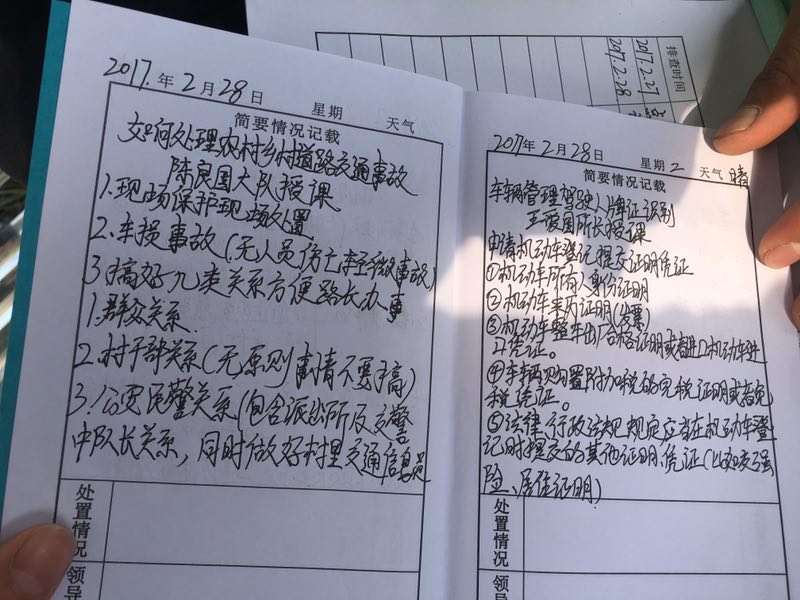 2017.年2月28日 星期 天气
简要情况记载
如何处理农村乡村道路交通事故
陈良国大队授课
1.现场保护现场处置
2.车损事故(无人员伤亡轻微事故)
3.搞好九类关系方便路长办事
1.群众关系.
2.村干部关系(无原则事情不要搞)
3.公安民警关系(包含派出所及交警
中队长关系,同时做好村里交通信息员
处置情况
领导
排查时间
2017.2.27
2017.2.28
2017年2月28日 星期2 天气晴
简要情况记载
车辆管理驾驶人牌证识别
王爱国所长授课
申请机动车登记提交证明凭证
①机动车所有人身份证明
②机动车来历证明(发票)
③机动车整车出厂合格证明或者进口机动车进
口凭证。
④车辆购置附加税的完税证明或者免
税凭证。
⑤法律行政法规规定应当在机动车登
记时提交的其他证明、凭证(比如交强
险、居住证明)
处置情况
领导